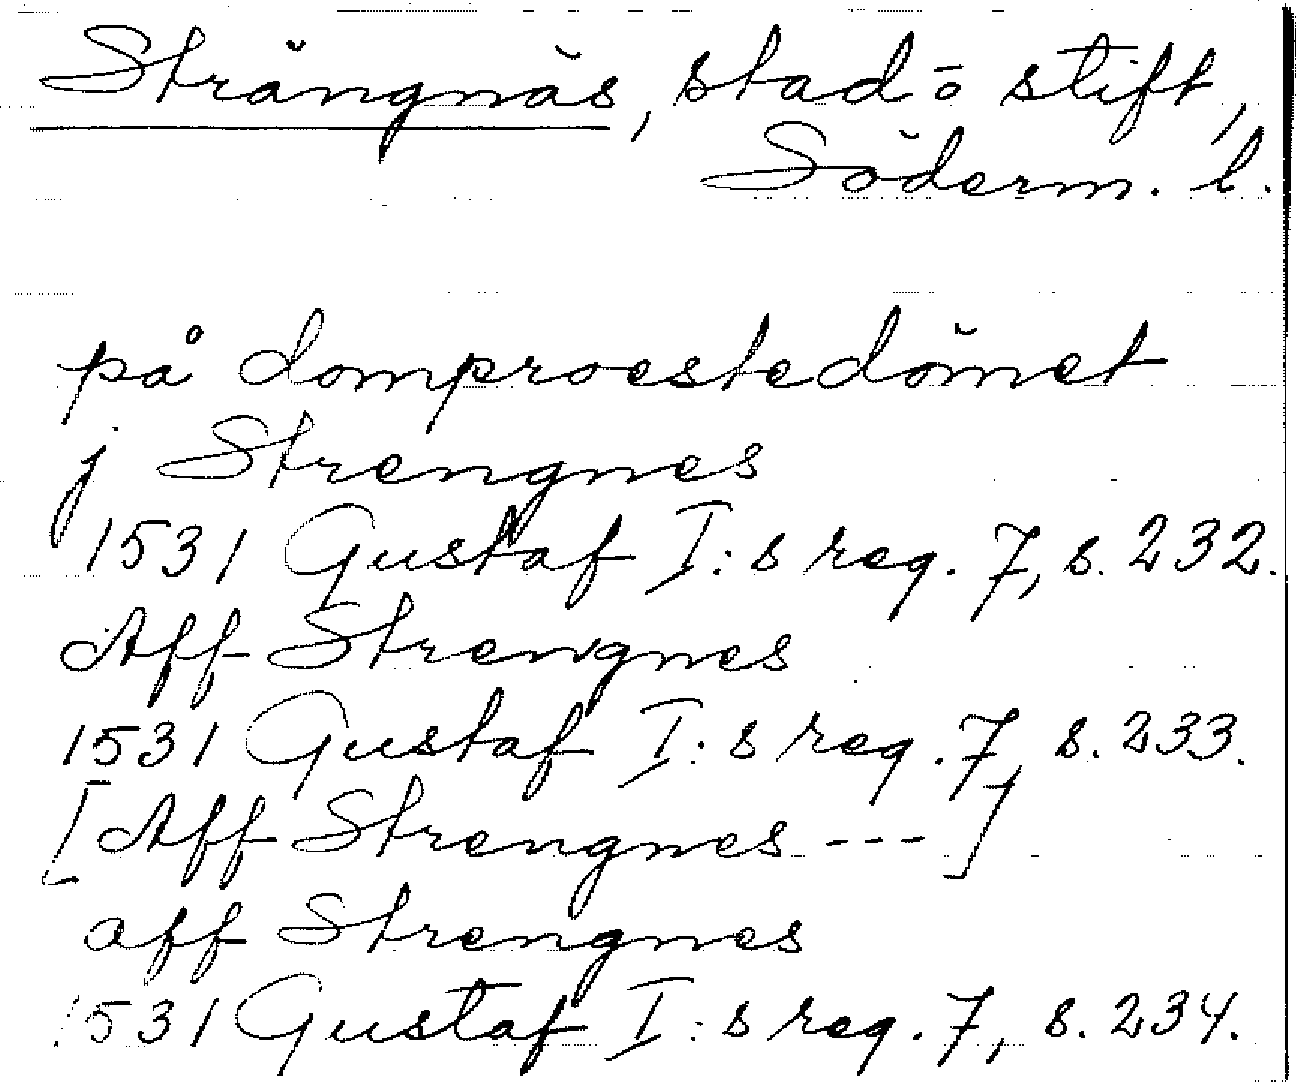 Strängnäs, stad o stift,
Söderm. l.
på domproestedömet
j Strengnes
1531 Gustaf I:s reg. 7, s. 232.
Aff Strengnes
1531 Gustaf I:s reg. 7, s. 233.
[Aff Strengnes ---]
aff Strengnes
1531 Gustaf I:s reg. 7, s. 234.